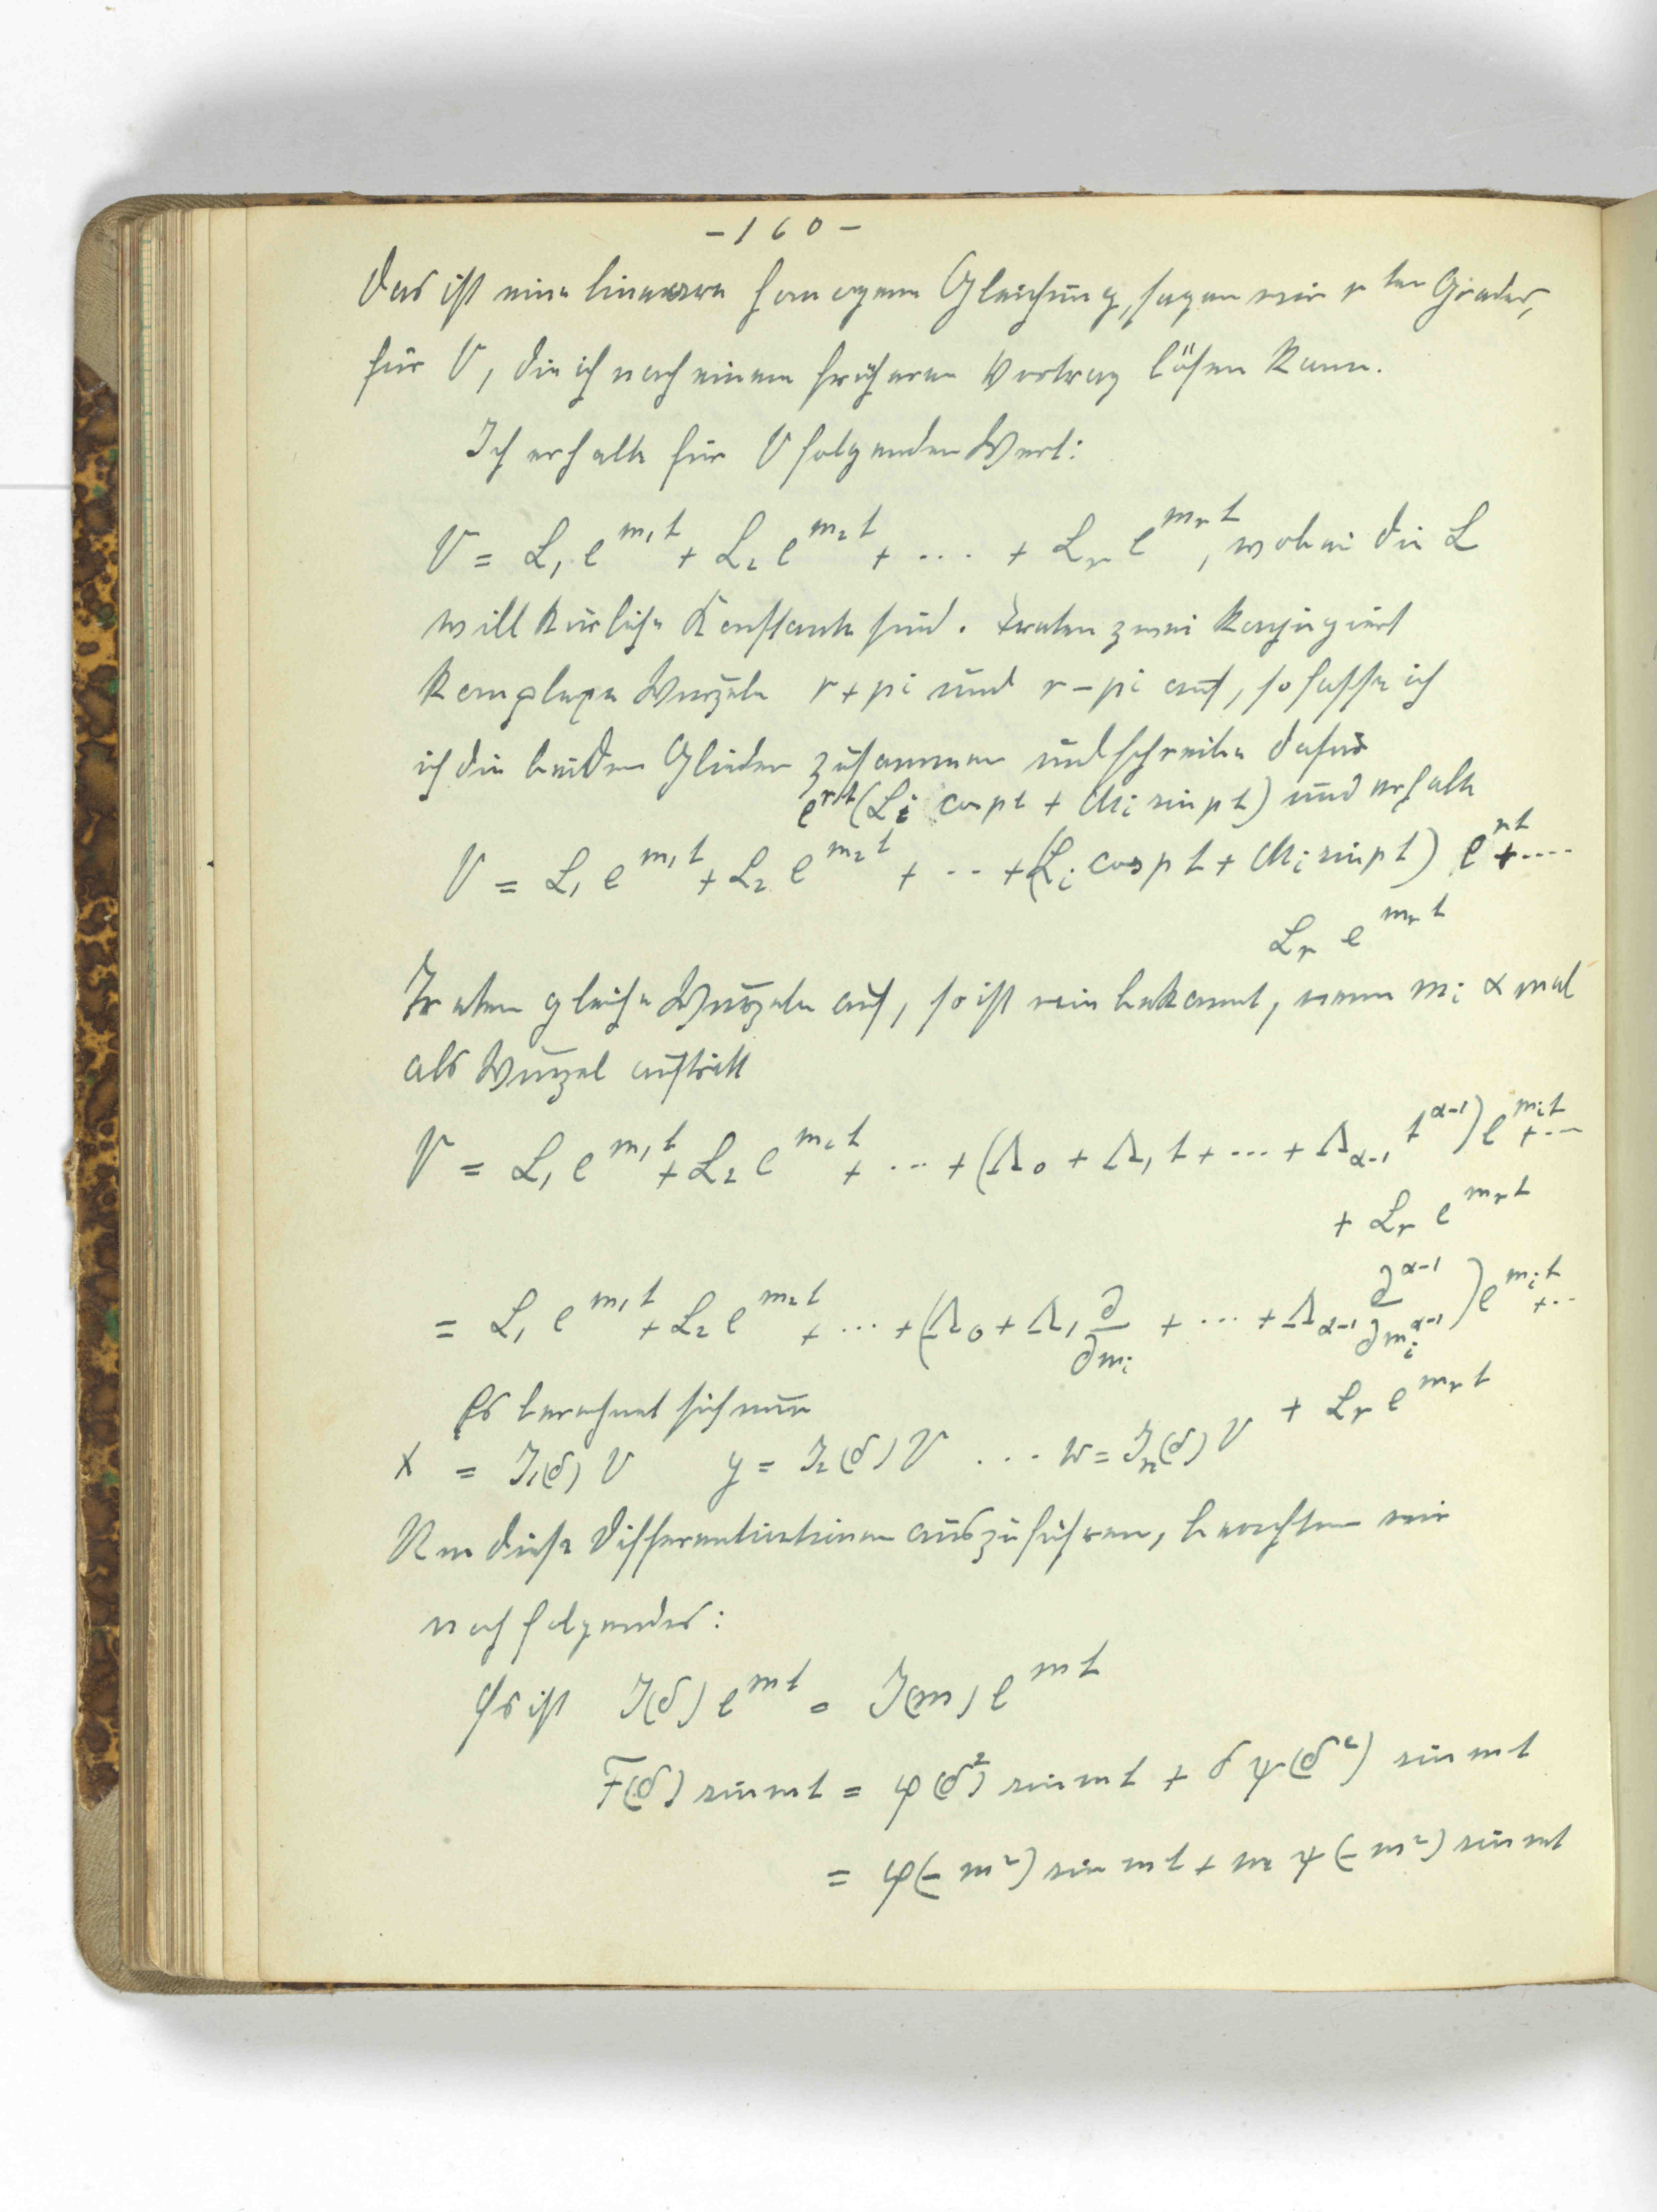 - 160 -
Das ist eine lineare homogene Gleichung, sagen wir r ten Grades,
für V, die ich nach einem früheren Vortrag lösen kann.
Ich erhalte für V folgenden Wert:
V = L₁ e^{m₁t} + L₂ e^{m₂t} + ... + Lᵣ e^{mᵣt}, wobei die L
willkürliche Konstante sind. Treten zwei konjugiert
komplexe Wurzeln r + pi und r - pi auf, so fasse ich
ich die beiden Glieder zusammen und schreibe dafür
e^{rt}(Lᵢ cos pt + Mᵢ sin pt) und erhalte
V = L₁ e^{m₁t} + L₂ e^{m₂t} + ... + (Lᵢ cos pt + Mᵢ sin pt) e^{rt} + ....
Lᵣ e^{mᵣt}
Treten gleiche Wurzeln auf, so ist wie bekannt, wenn mᵢ α mal
als Wurzel auftritt
V = L₁ e^{m₁t} + L₂ e^{m₂t} + ... + (Λ₀ + Λ₁ t + ... + Λ_{α-1} t^{α-1}) e^{mᵢt} + ...
+ Lᵣ e^{mᵣt}
= L₁ e^{m₁t} + L₂ e^{m₂t} + ... + (Λ₀ + Λ₁ ∂/∂mᵢ + ... + Λ_{α-1} ∂^{α-1}/∂mᵢ^{α-1}) e^{mᵢt} + ...
+ Lᵣ e^{mᵣt}
Es berechnet sich nun
x = J₁(δ) V y = J₂(δ) V ... w = Jₙ(δ) V
Um diese Differentiationen auszuführen, beachten wir
noch folgendes:
Es ist J(δ) e^{mt} = J(m) e^{mt}
F(δ) sin mt = φ(δ²) sin mt + δ ψ(δ²) sin mt
= φ(-m²) sin mt + m ψ(-m²) sin mt